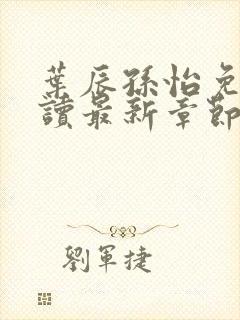 葉辰孫怡免
讀最新章節
劉軍捷